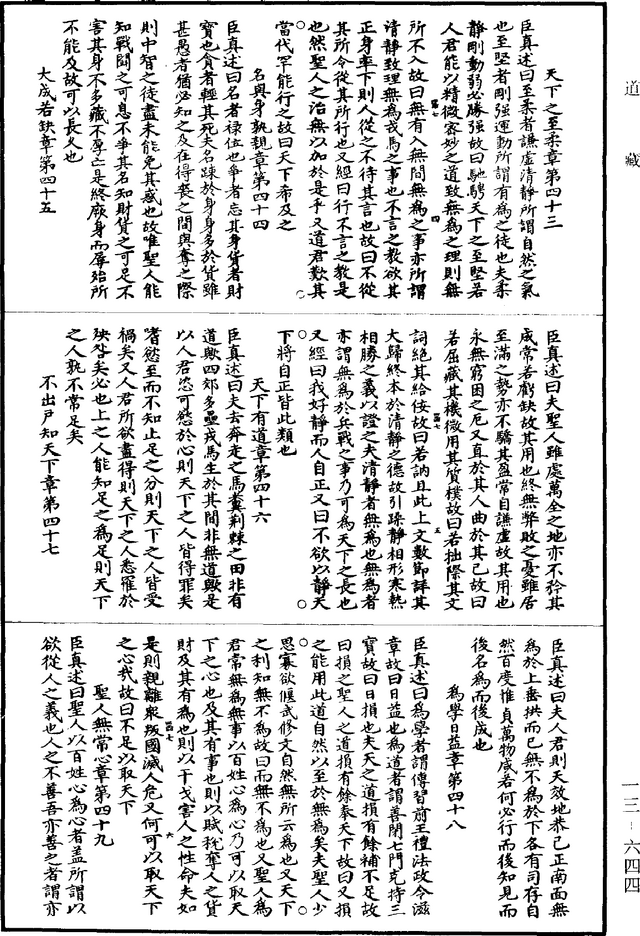 道藏
天下之至柔章第四十三
臣真述曰至柔者謙虛清靜所謂自然之氣
也至堅者剛強運動所謂有為之徒也夫柔
靜剛動弱必勝強故曰馳騁天下之至堅若
人君能以精微密妙之道致無為之理則無
所不入故曰無有入無間無為之事亦所謂
清靜致理無為我馬之事也不言之教欲其
正身率下則人從之不待其言也故曰不從
其所令從其所行也又經曰行不言之教是
也然聖人之治無以加於是乎又道君歎其
當代罕能行之故曰天下希及之
名與身孰親章第四十四
臣真述曰名者祿位也爭者忘其身貨者財
寶也貪者輕其死夫名踈於身身多於貨雖
甚愚者猶必知之及在得喪之間與奪之際
則中智之徒盡未能免其惑也故唯聖人能
知戰鬭之可息不爭其名知財貨之可足不
害其身不多藏不厚亡是終厥身而辱殆所
不能及故可以長久也
大成若缺章第四十五
臣真述曰夫聖人雖處萬全之地亦不矜其
成常若虧缺故其用也終無弊敗之憂雖居
至滿之勢亦不驕其盈常自謙虛故其用也
永無窮困之厄又直於其人曲於其己故曰
若屈藏其機微用其質樸故曰若拙際其文
詞絕其給佞故曰若訥且此上文數節詳其
大歸終本於清靜之德故引躁靜相形寒熱
相勝之義以證之夫清靜者無為也無為者
亦謂無為於兵戰之事乃可為天下之長也
又經曰我好靜而人自正又曰不欲以靜天
下將自正皆此類也
天下有道章第四十六
臣真述曰夫去奔走之馬糞荆棘之田非有
道歟四郊多壘戎馬生於其間非無道歟是
以人君恣可慾於心則天下之人皆得罪矣
嗜慾至而不知止足之分則天下之人皆受
禍矣又人君所欲盡得則天下之人悉罹於
殃咎矣必也上之人能知足之為足則天下
之人孰不常足矣
不出戶知天下章第四十七
臣真述曰夫人君則天效地恭己正南面無
為於上垂拱而已無不為於下各有司存自
然百度惟貞萬物咸若何必行而後知見而
後名為而後成也
為學日益章第四十八
臣真述曰為學者謂傳習前王禮法政令滋
章故曰日益也為道者謂善閉七門克持三
寶故曰日損也夫天之道損有餘補不足故
曰損之聖人之道損有餘奉天下故曰又損
之能用此道自然以至於無為矣夫聖人少
思寡欲偃武修文自然無所云為也又天下
之利知無不為故曰而無不為也又聖人為
君常無為無事以百姓心為心乃可以取天
下之心也及其有事也則以賦稅奪人之貨
財及其有為也則以干戈害人之性命夫如
是則親離衆叛國滅人危又何可以取天下
之心哉故曰不足以取天下
聖人無常心章第四十九
臣真述曰聖人以百姓心為心者蓋所謂以
欲從人之義也人之不善吾亦善之者謂亦
一三－六四四